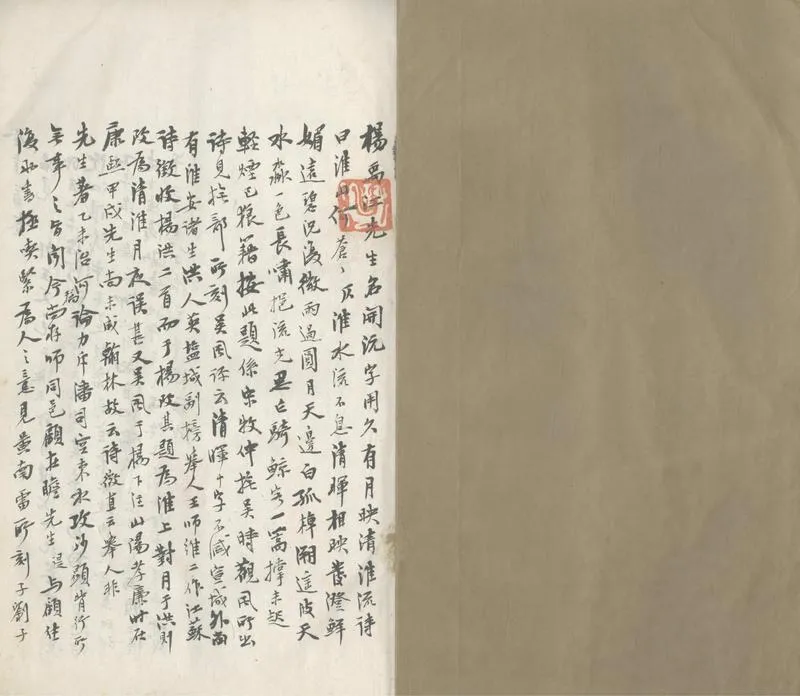 楊禹江先生名開沅字用久有月映清淮流詩
曰淮山何蒼蒼灰淮水流不息清暉相映發澄鮮
媚遠碧況復微雨過圓月天邊白孤棹溯這波天
水淼色長嘯挹流光思占騎鯨客一篙撑未起
輕煙已狼籍按此題係宋牧仲撫吳時觀風所出
詩見撫部所刻吳風評云清暉十字不减宣城外尚
有淮安諸生洪人英塩城副榜舉人王師淮二作江蘇
詩徵收楊洪二首而于楊改其題為淮上對月于洪則
改為清淮月夜誤甚又吳風于楊下注山陽孝廉時在
康熙甲戌先生尚未成翰林故云詩徵直云舉人非
先生著乙未治河論力斥潘司空束水攻沙顯背行所
無事之旨聞今尚存師同邑顧在瞻先生諟与顧往
復水書極喫緊為人之意見黄南雷所刻子劉子